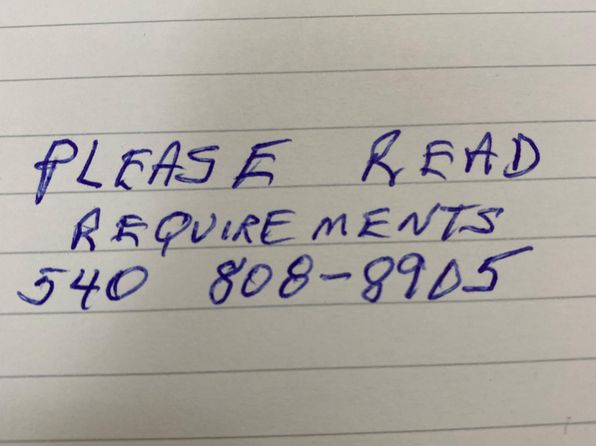 PLEASE READ
REQUIREMENTS
540 808-8905